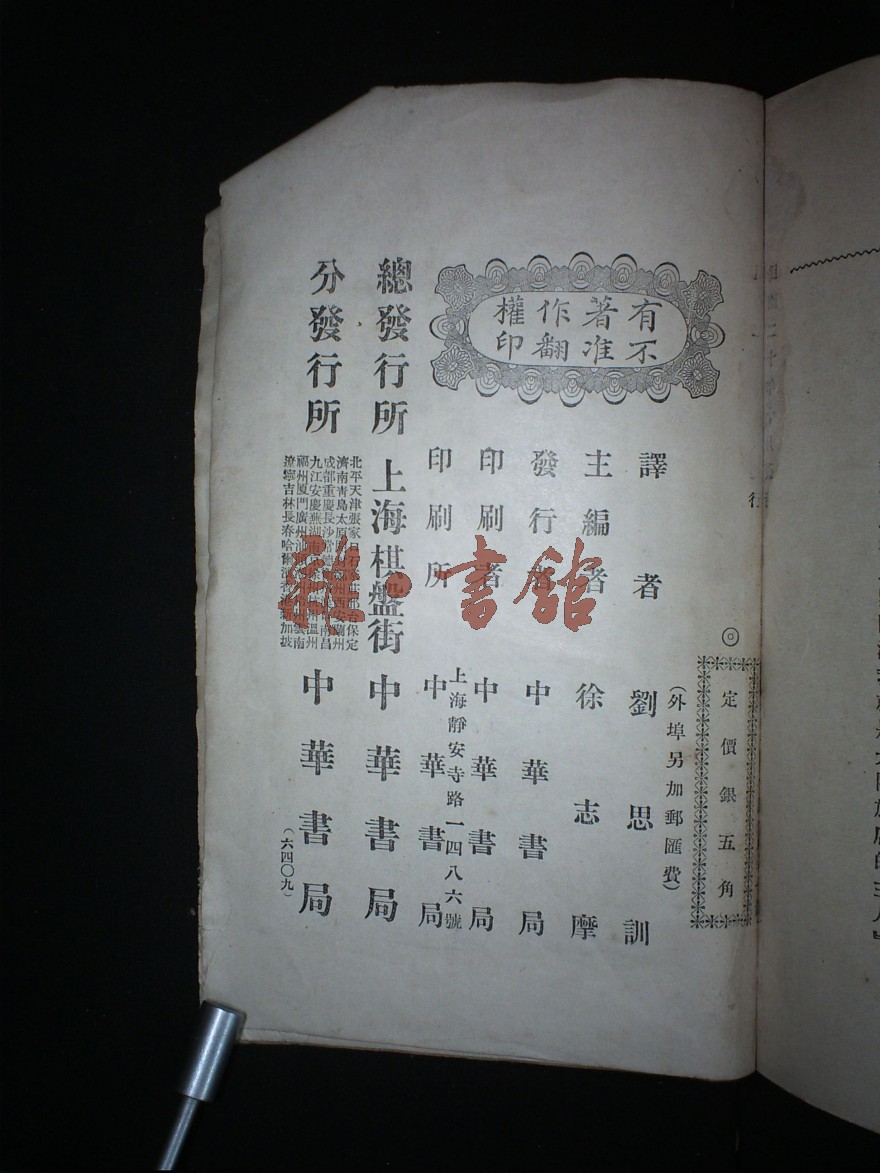 有不
著准
作翻
權印
◎
定價銀五角
(外埠另加郵匯費)
譯者 劉思訓
主編者 徐志摩
發行者 中華書局
印刷者 中華書局
印刷所 上海靜安寺路一四八六號 中華書局
總發行所 上海棋盤街 中華書局
分發行所
北平天津張家口
保定
濟南青島太原
西安蘭州
成都重慶長沙常
南昌
九江安慶蕪湖南
溫州
福州廈門廣州汕
雲南
遼寧吉林長春哈爾
新加坡
中華書局
(六四〇九)
雜·書館